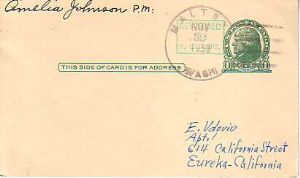 Amelia Johnson P.M.
MALTBY
NOV
1953
WASH.
THIS SIDE OF CARD IS FOR ADDRESS
E. Vdovio
Apt 1
614 California Street
Eureka-California